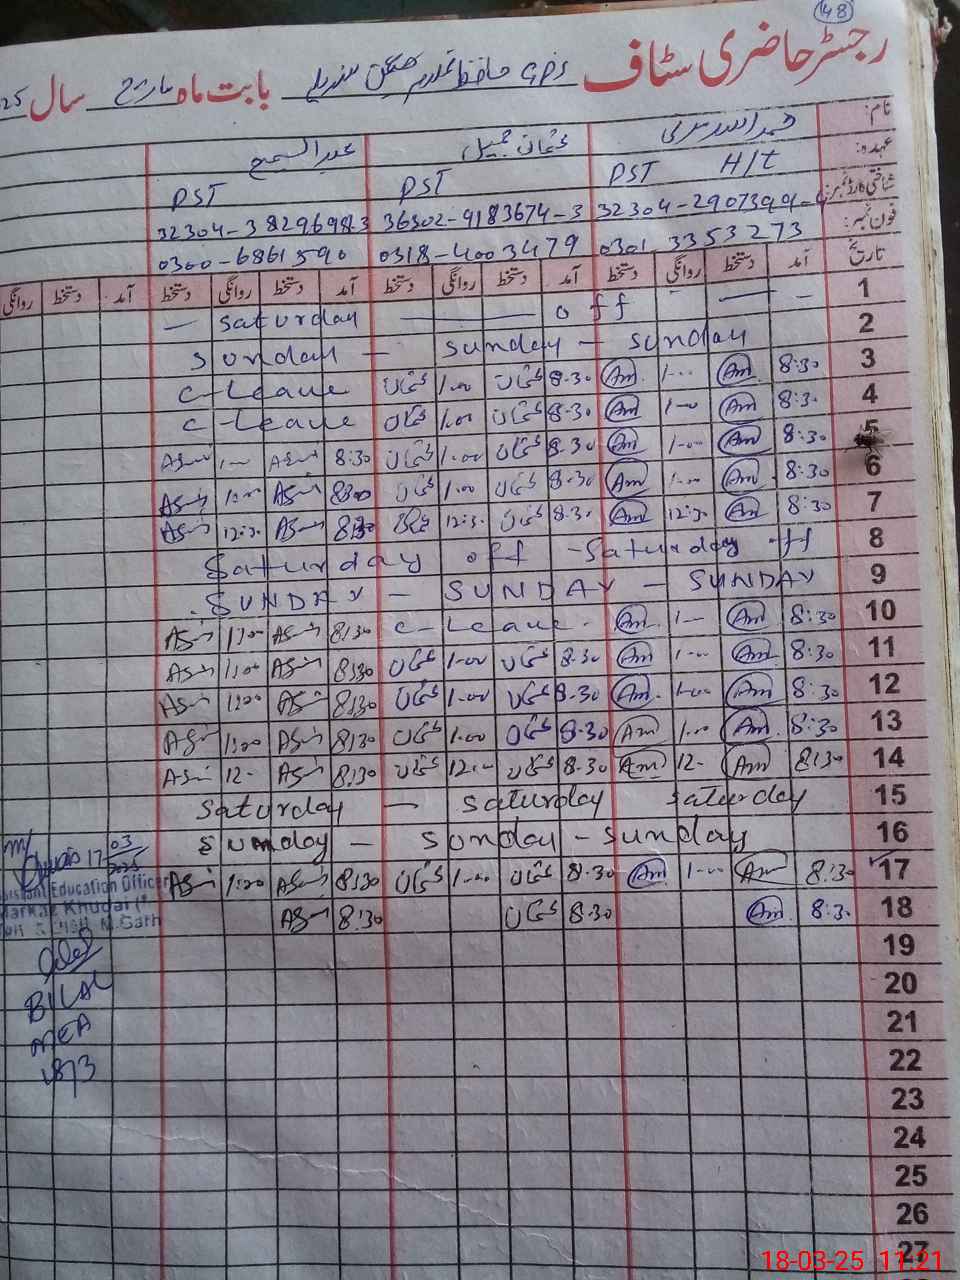 48
رجسٹر حاضری سٹاف GPS حافظ غلام بابت ماہ مارچ سال 25
نام: عثمان جمیل عبد السمیع
عہدہ: PST H/T PST PST
شناختی کارڈ نمبر: 36302-9183674-3
فون نمبر: 0301 3353273 0318-4003479 0300-6861590
تاریخ آمد دستخط روانگی دستخط آمد دستخط روانگی دستخط آمد دستخط روانگی دستخط آمد دستخط روانگی
1 — off — saturday —
2 sunday — sunday — sunday
3 8:30 Am 1-00 Am 8.30 عثمان 1.00 عثمان c-Leave
4 8:30 Am 1-00 Am 8.30 عثمان 1.00 عثمان c-Leave
5 8:30 Am 1-00 Am 8.30 عثمان 1.00 عثمان 8:30
6 8:30 Am 1-00 Am 8.30 عثمان 1.00 عثمان
7 8:30 Am 12:30 Am 8.30 عثمان 12:30 عثمان 8:30 12:30
8 Saturday off - Saturday off
9 SUNDAY — SUNDAY — SUNDAY
10 8:30 Am 1-00 Am c-Leave 8:30 1:00
11 8:30 Am 1-00 Am 8.30 عثمان 1.00 عثمان 8:30 1:00
12 8:30 Am 1-00 Am 8.30 عثمان 1.00 عثمان 8:30 1:00
13 8:30 Am 1-00 Am 8.30 عثمان 1.00 عثمان 8:30 1:00
14 8:30 Am 12- Am 8.30 عثمان 12.00 عثمان 8:30 12-
15 saturday — saturday saturday
16 sunday — sunday - sunday
17 8:30 Am 1-00 Am 8.30 عثمان 1.00 عثمان 8:30 1:00
18 8:30 Am 8.30 عثمان 8:30
19
20
21
22
23
24
25
26
27
17 03
2025
Assistant Education Officer
Markaz Khudai
M.Garh
BILAL
MEA
1873
18-03-25 11:21